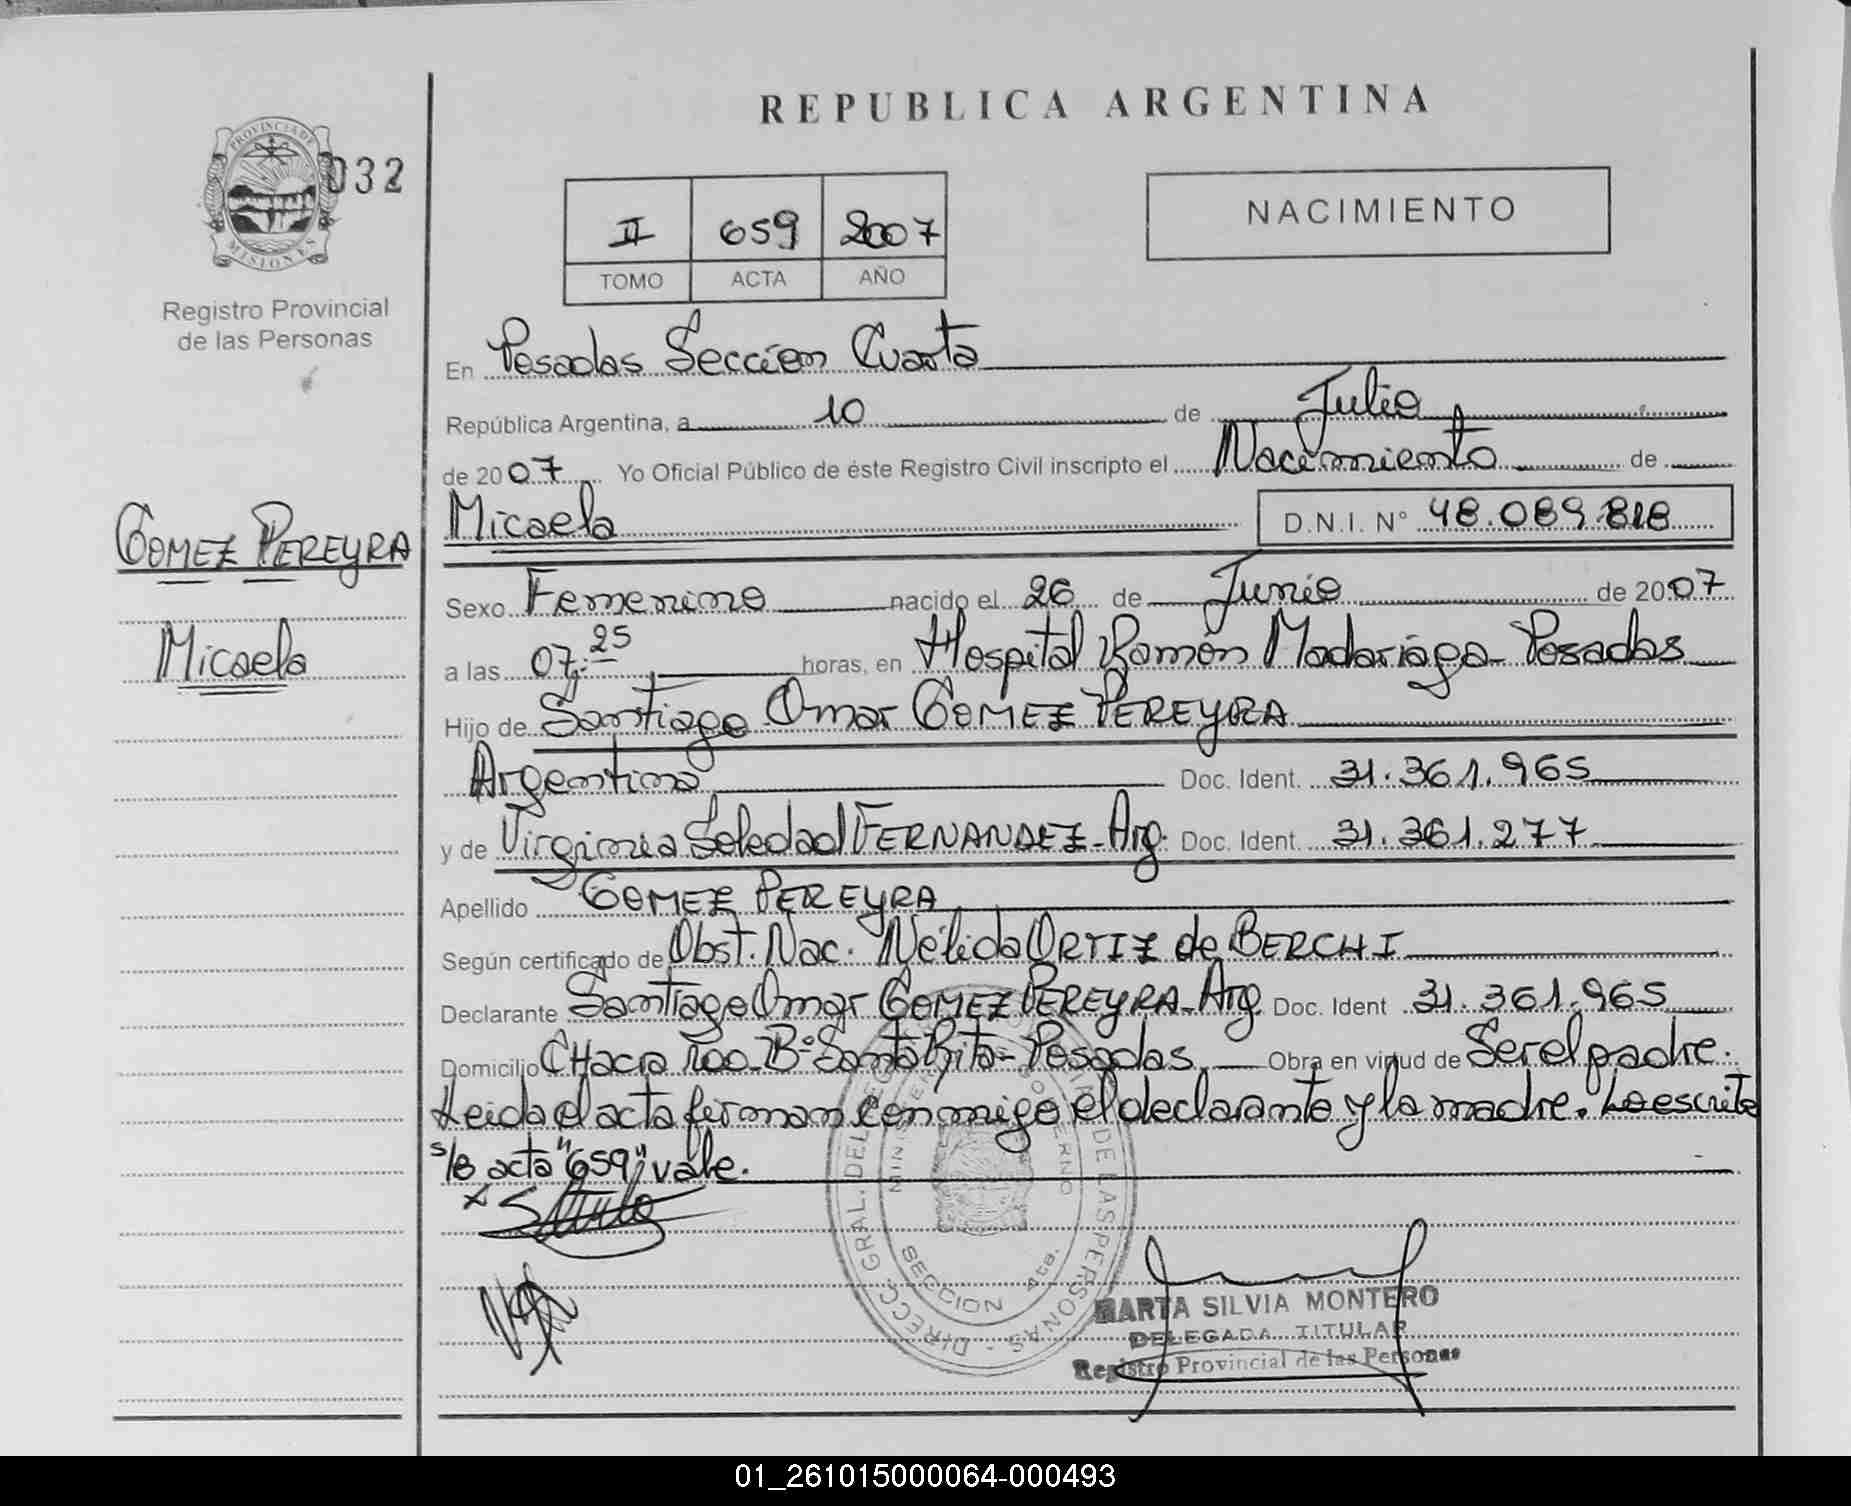 REPUBLICA ARGENTINA
PROVINCIA DE
MISIONES
032
Registro Provincial
de las Personas
II 659 2007
TOMO ACTA AÑO
NACIMIENTO
En Posadas Sección Cuarta
República Argentina, a 10 de Julio
de 2007 Yo Oficial Público de éste Registro Civil inscripto el Nacimiento de
Micaela D.N.I. N° 48.089.818
GOMEZ PEREYRA
Micaela
Sexo Femenino nacido el 26 de Junio de 2007
a las 07:25 horas, en Hospital Ramón Madariaga - Posadas
Hijo de Santiago Omar GOMEZ PEREYRA
Argentino Doc. Ident. 31.361.965
y de Virginia Soledad FERNANDEZ - Arg. Doc. Ident. 31.361.277
Apellido GOMEZ PEREYRA
Según certificado de Obst. Nac. Nélida ORTIZ de BERCHI
Declarante Santiago Omar GOMEZ PEREYRA - Arg Doc. Ident 31.361.965
Domicilio CHacra 100 - B° Santa Rita - Posadas Obra en virtud de Ser el padre.
Leida el acta firman conmigo el declarante y la madre. Lo escrito
s/b acta "659" vale.
DIRECC. GRAL. DEL REG. DE LAS PERSONAS
SECCION 4ta.
MARTA SILVIA MONTERO
DELEGADA TITULAR
Registro Provincial de las Personas
01_261015000064-000493